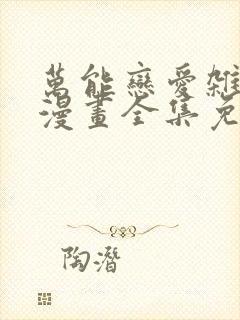 萬能戀愛雜
漫畫全集免
陶潛